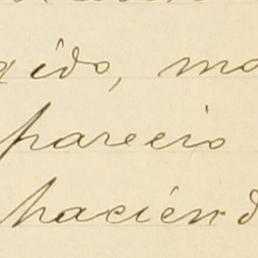 gido, ma
parecio
haciénd